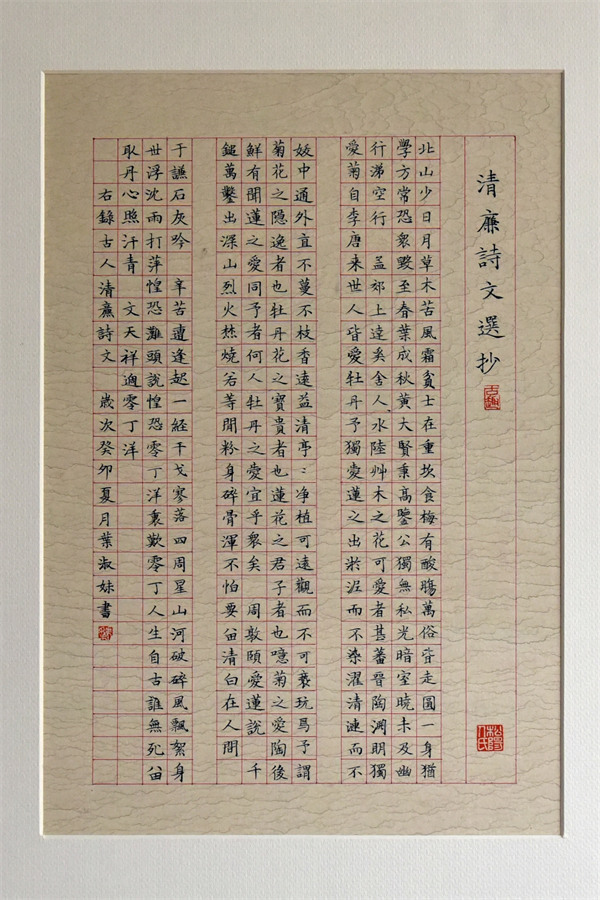 清廉詩文選抄
松陽人氏
北山少日月草木苦風霜貧士在重坎食梅有酸腸萬俗皆走圓一身猶
學方常恐衆毀至春葉成秋黃大賢秉高鑒公獨無私光暗室曉未及幽
行涕空行 孟郊上達奚舍人 水陸艸木之花可愛者甚蕃晉陶淵明獨
愛菊自李唐来世人皆愛牡丹予獨愛蓮之出淤泥而不染濯清漣而不
妖中通外直不蔓不枝香遠益清亭〻净植可遠觀而不可褻玩焉予謂
菊花之隱逸者也牡丹花之寶貴者也蓮花之君子者也噫菊之愛陶後
鮮有聞蓮之愛同予者何人牡丹之愛宜乎衆矣 周敦頤愛蓮說 千
鎚萬鑿出深山烈火焚燒若等閒粉身碎骨渾不怕要畱清白在人間
于謙石灰吟 辛苦遭逢起一經干戈寥落四周星山河破碎風飄絮身
世浮沈雨打萍惶恐灘頭說惶恐零丁洋裏歎零丁人生自古誰無死畱
取丹心照汗青 文天祥過零丁洋
右錄古人清廉詩文 歲次癸卯夏月葉淑妹書